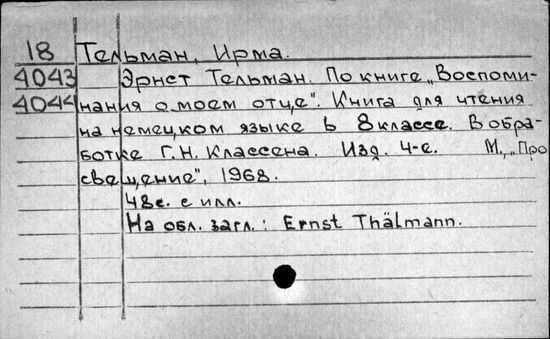 18 Тельман, Ирма.
4043 Эрнст Тельман. По книге „Воспоми-
4044 нания о моем отце". Книга для чтения
на немецком языке в 8 классе. В обра-
ботке Г.Н. Классена. Изд. 4-е. М., „Про
свещение", 1968.
48с. с илл.
На обл. загл.: Ernst Thälmann.